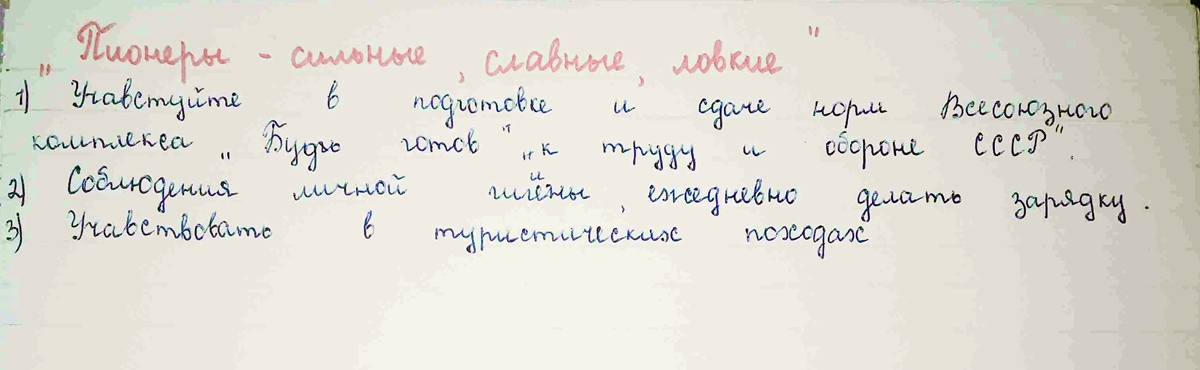 „Пионеры - сильные, славные, ловкие"
1) Учавстуйте в подготовке и сдаче норм Всесоюзного
комплекса „Будь готов" „к труду и обороне СССР".
2) Соблюдения личной гигиены, ежедневно делать зарядку.
3) Учавствовать в туристических походах